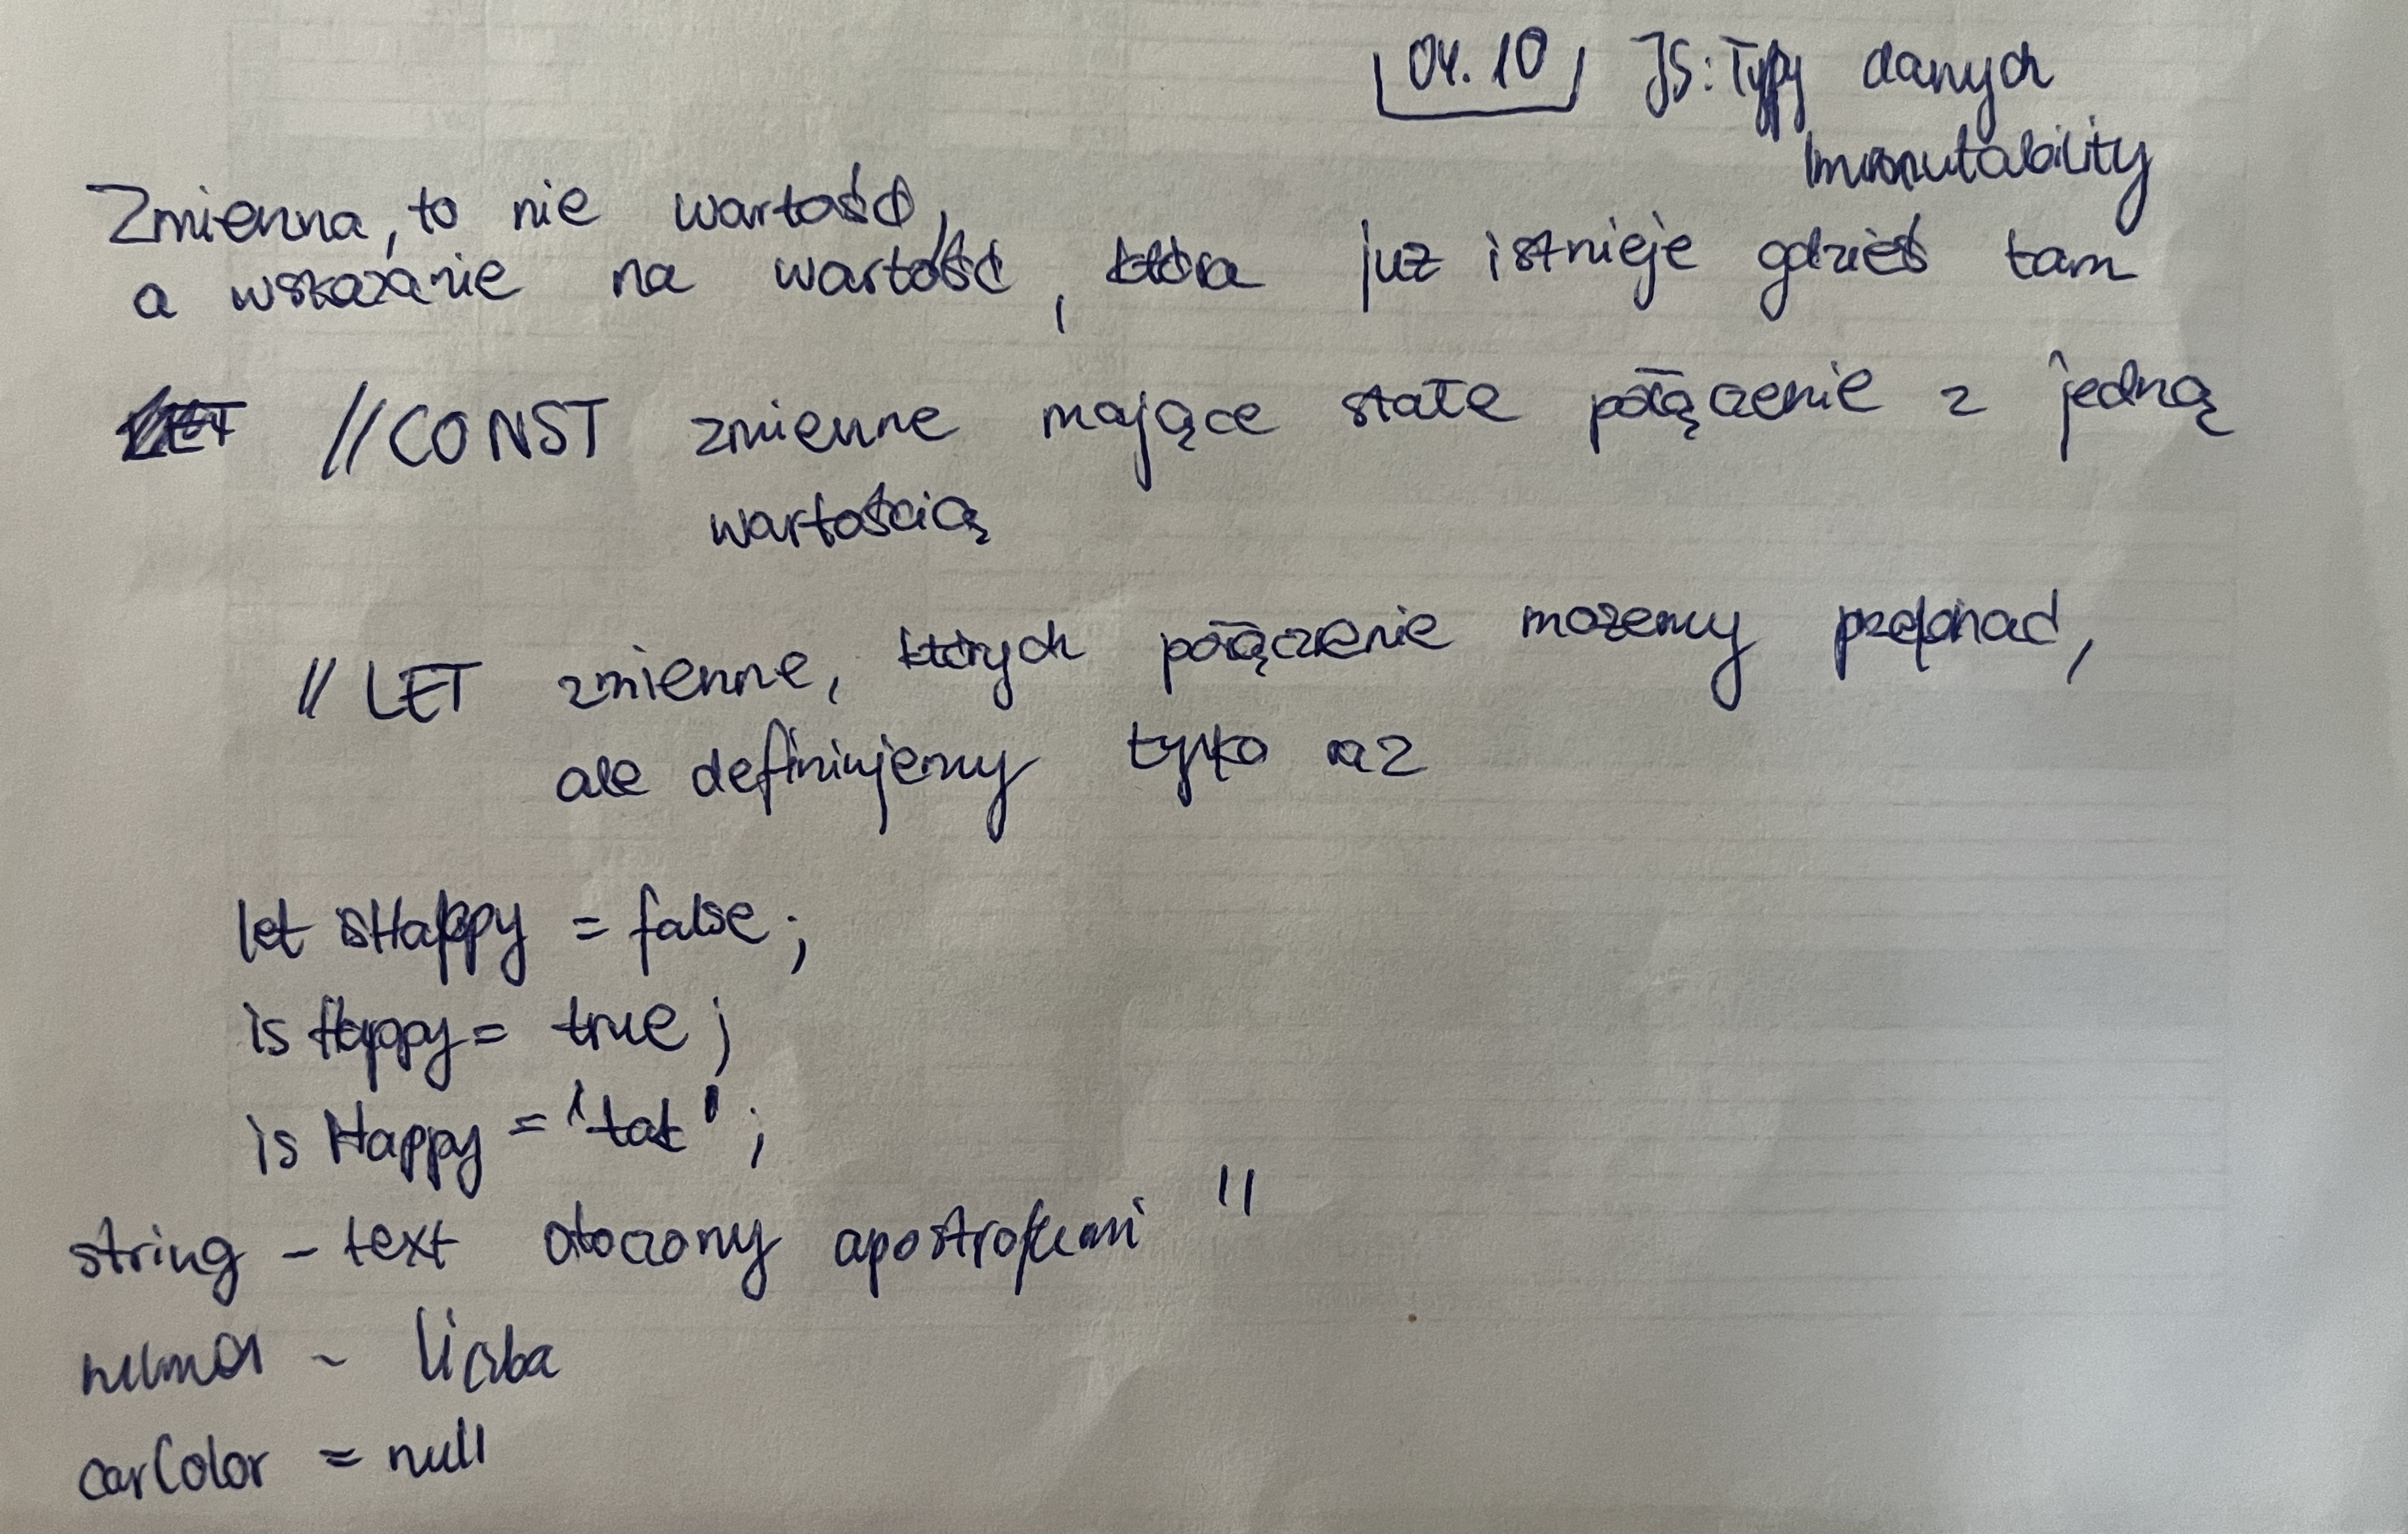 04.10 JS: Typy danych
Immutability
Zmienna, to nie wartość,
a wskazanie na wartość, która już istnieje gdzieś tam
LET //CONST zmienne mające stałe połączenie z jedną
wartością
// LET zmienne, których połączenie możemy przepinać,
ale definiujemy tylko raz
let isHappy = false;
isHappy = true;
isHappy = 'tak';
string - text otoczony apostrofami ''
- liczba
carColor = null